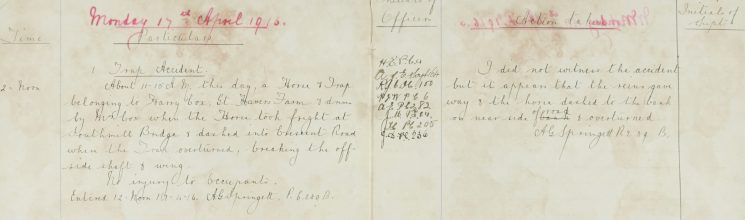 Monday 17th April 1916.
Time
Particulars
Officer
Action taken
Initials of
Supt
12-Noon
1 Trap Accident.
About 11-10 A.M. this day, a Horse & Trap
belonging to Harry Cox, Gt. Havers Farm & driven
by Mr Cox when the Horse took fright at
Southmill Bridge & dashed into Crescent Road
when the Trap overturned, breaking the off-
side shaft & wing.
No injury to Occupants.
Entered 12-Noon 17-4-16. AG Springett, P.C. 289 B.
I did not witness the accident
but it appears that the reins gave
way & the horse dashed to the bank
on near side of road & overturned.
AG Springett PC 289 B.